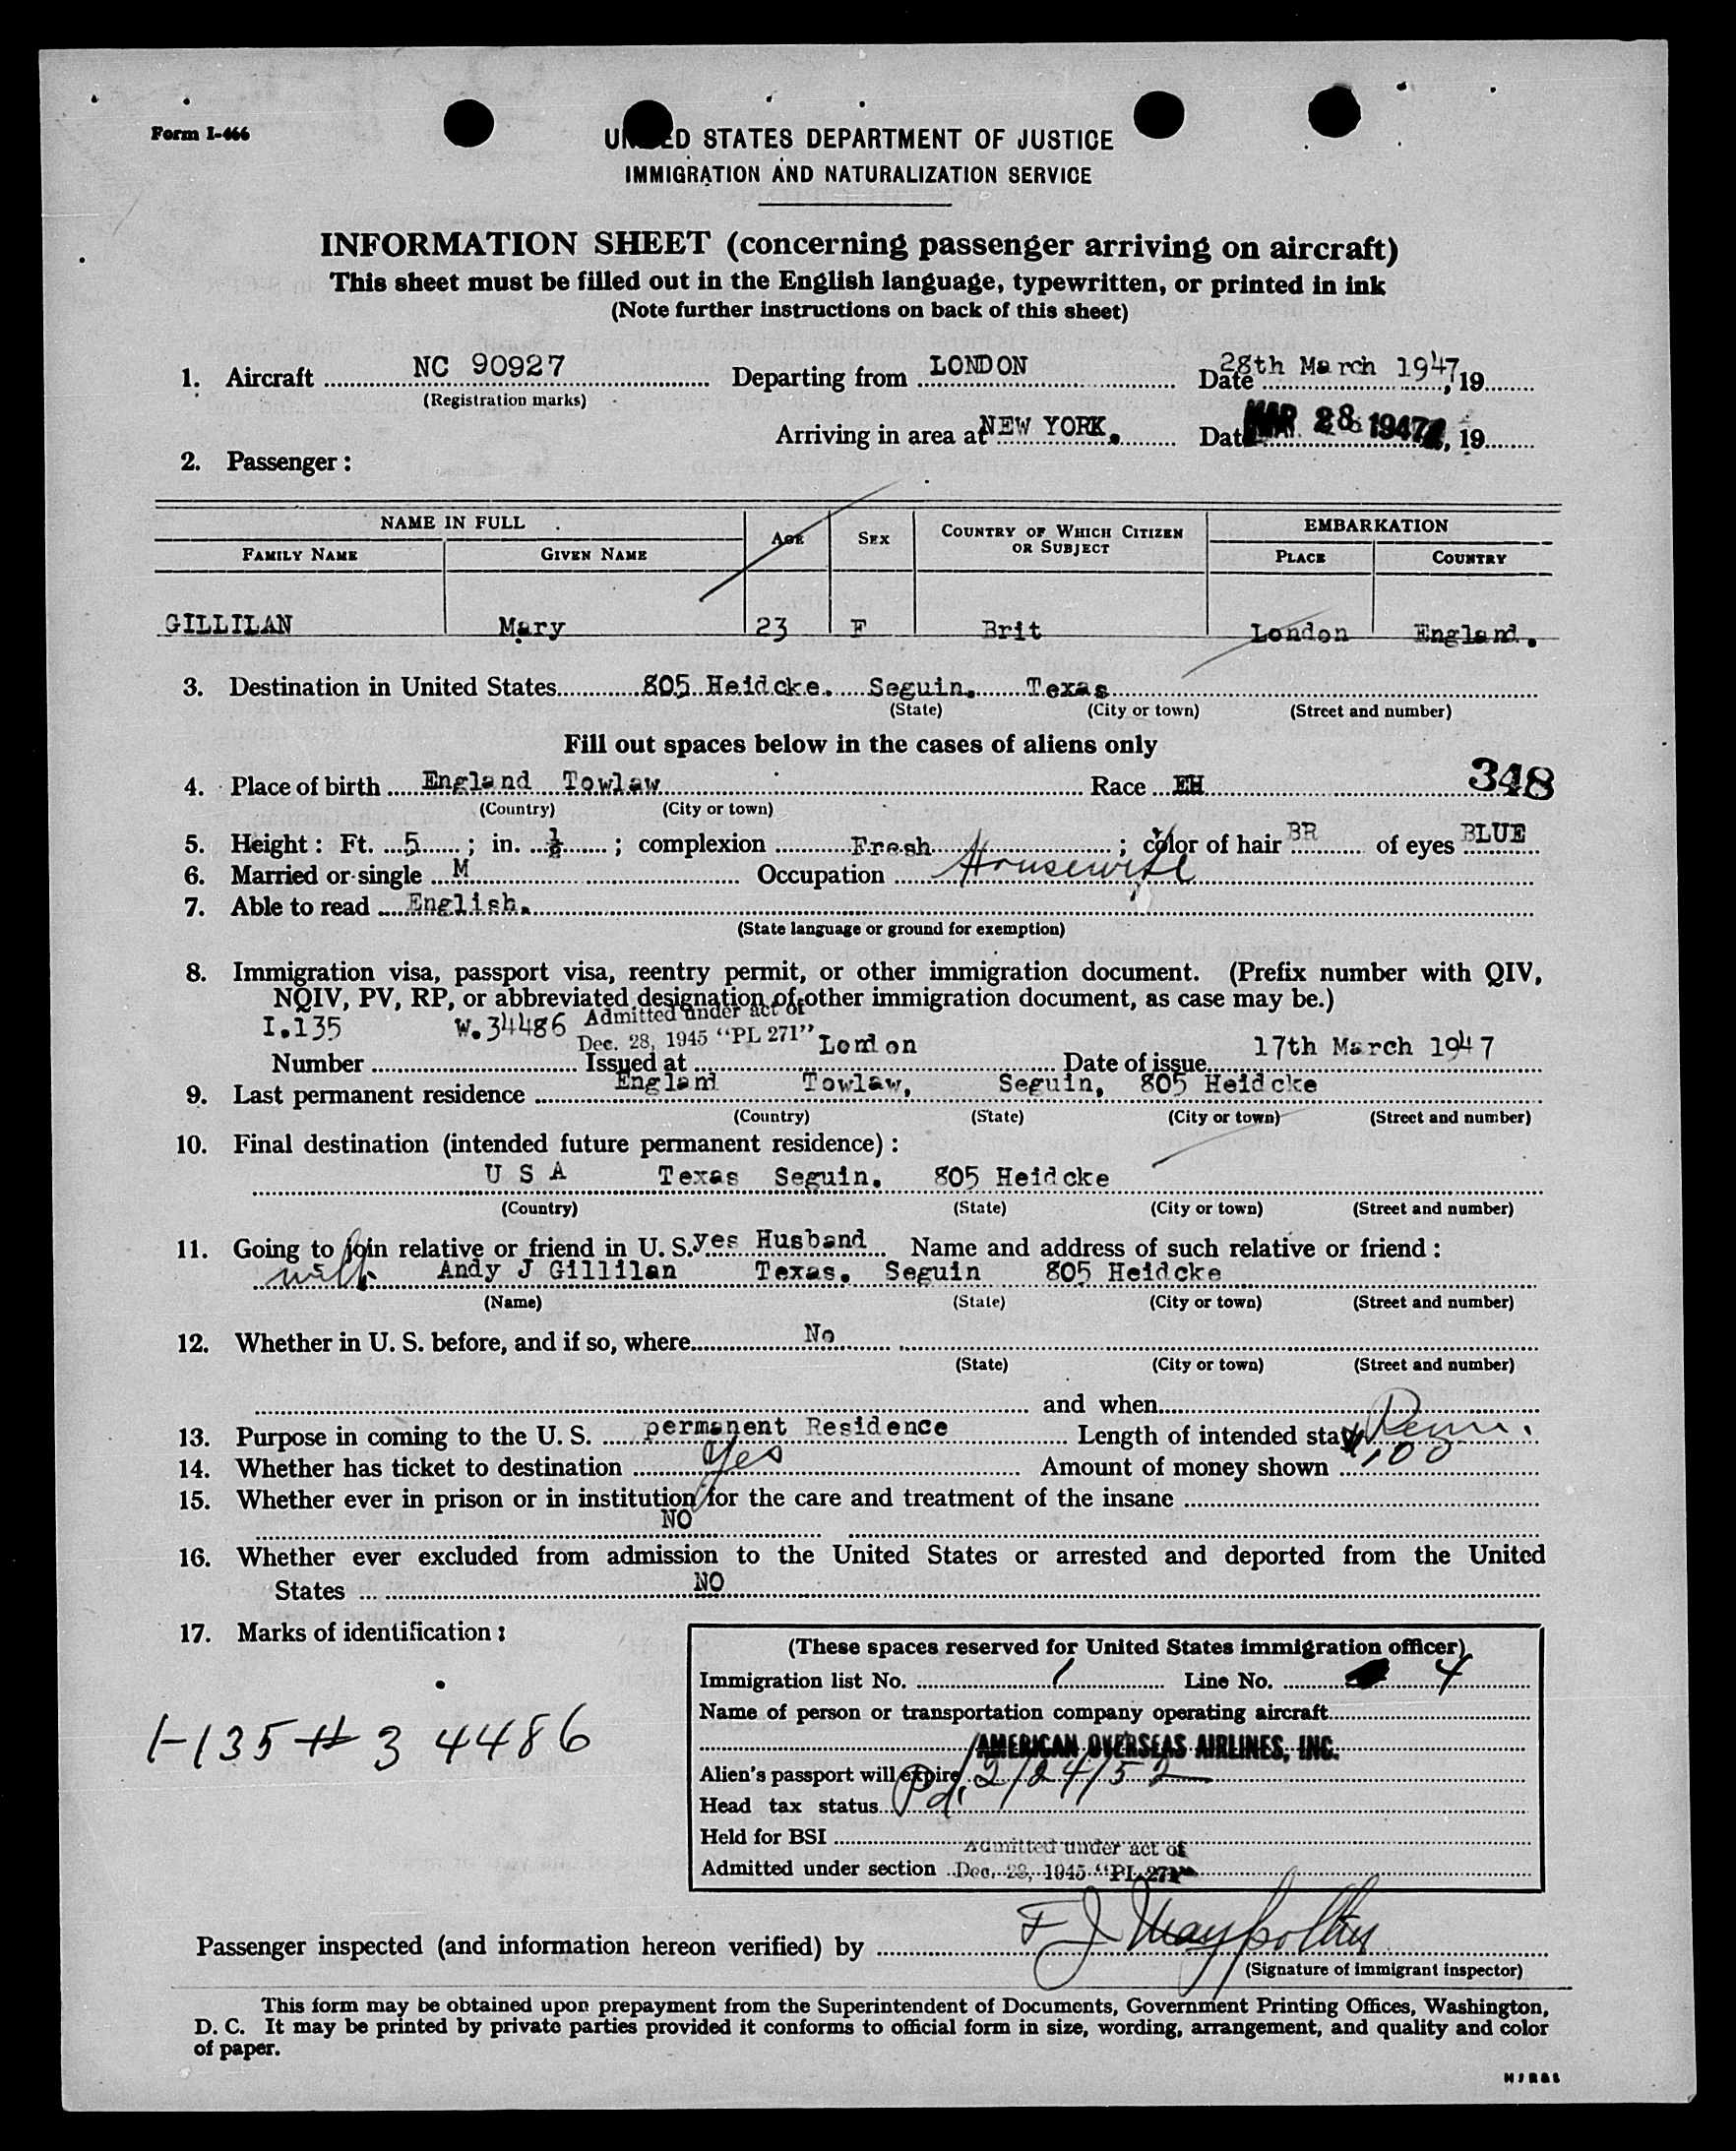 Form I-466
UNITED STATES DEPARTMENT OF JUSTICE
IMMIGRATION AND NATURALIZATION SERVICE
INFORMATION SHEET (concerning passenger arriving on aircraft)
This sheet must be filled out in the English language, typewritten, or printed in ink
(Note further instructions on back of this sheet)
1. Aircraft NC 90927 Departing from LONDON Date 28th March 1947, 19
(Registration marks)
Arriving in area at NEW YORK. Date MAR 28 1947, 19
2. Passenger:
NAME IN FULL AGE SEX COUNTRY OF WHICH CITIZEN OR SUBJECT EMBARKATION
FAMILY NAME GIVEN NAME PLACE COUNTRY
GILLILAN Mary 23 F Brit London England.
3. Destination in United States 805 Heidcke. Seguin. Texas
(State) (City or town) (Street and number)
Fill out spaces below in the cases of aliens only
348
4. Place of birth England Towlaw Race EH
(Country) (City or town)
5. Height: Ft. 5; in. ½; complexion Fresh; color of hair BR of eyes BLUE
6. Married or single M Occupation Housewife
7. Able to read English.
(State language or ground for exemption)
8. Immigration visa, passport visa, reentry permit, or other immigration document. (Prefix number with QIV,
NQIV, PV, RP, or abbreviated designation of other immigration document, as case may be.)
I.135 W.34486 Admitted under act of
Dec. 28, 1945 "PL 271" London 17th March 1947
Number Issued at Date of issue
9. Last permanent residence England Towlaw, Seguin, 805 Heidcke
(Country) (State) (City or town) (Street and number)
10. Final destination (intended future permanent residence):
U S A Texas Seguin. 805 Heidcke
(Country) (State) (City or town) (Street and number)
11. Going to join relative or friend in U. S. yes Husband Name and address of such relative or friend:
with Andy J Gillilan Texas. Seguin 805 Heidcke
(Name) (State) (City or town) (Street and number)
12. Whether in U. S. before, and if so, where No
(State) (City or town) (Street and number)
and when
13. Purpose in coming to the U. S. permanent Residence Length of intended stay Perm.
14. Whether has ticket to destination Yes Amount of money shown 100
15. Whether ever in prison or in institution for the care and treatment of the insane
NO
16. Whether ever excluded from admission to the United States or arrested and deported from the United
States NO
17. Marks of identification:
1-135 # 34486
(These spaces reserved for United States immigration officer)
Immigration list No. 1 Line No. 4
Name of person or transportation company operating aircraft
AMERICAN OVERSEAS AIRLINES, INC.
Alien's passport will expire 2/24/52
Head tax status Pd.
Held for BSI
Admitted under act of
Admitted under section Dec. 28, 1945 "PL 271"
Passenger inspected (and information hereon verified) by F J
(Signature of immigrant inspector)
This form may be obtained upon prepayment from the Superintendent of Documents, Government Printing Offices, Washington,
D. C. It may be printed by private parties provided it conforms to official form in size, wording, arrangement, and quality and color
of paper.